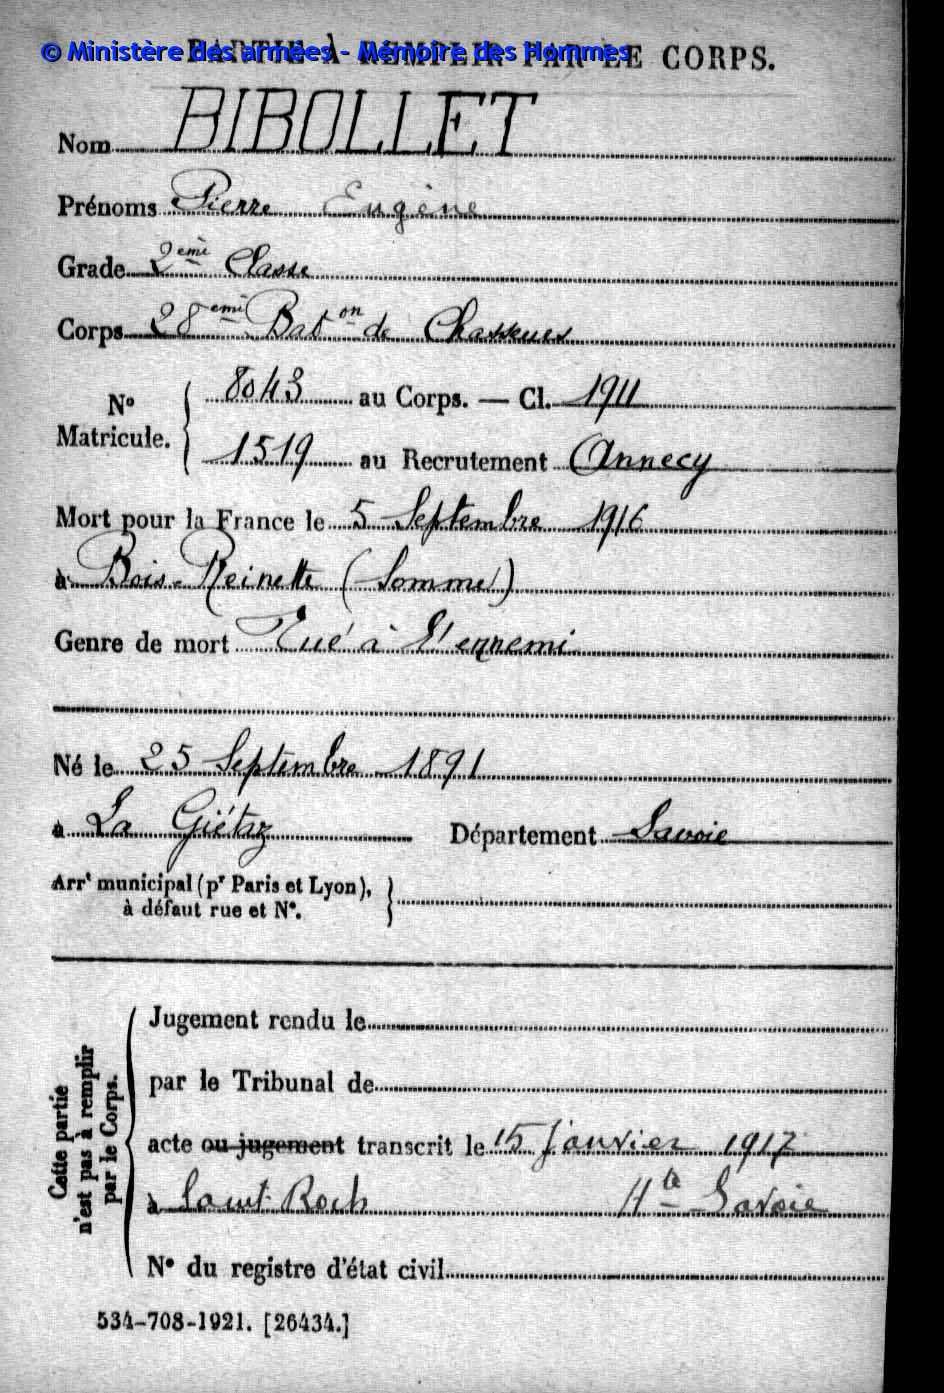 © Ministère des armées - Mémoire des Hommes
PARTIE À REMPLIR PAR LE CORPS.
Nom BIBOLLET
Prénoms Pierre Eugène
Grade 2ème Classe
Corps 28ème Baton de Chasseurs
8043 au Corps. — Cl. 1911
N° Matricule.
1519 au Recrutement Annecy
Mort pour la France le 5 Septembre 1916
à Bois-Reinette (Somme)
Genre de mort Tué à l'ennemi
Né le 25 Septembre 1891
à La Giétaz Département Savoie
Arrt municipal (pr Paris et Lyon),
à défaut rue et N°.
Cette partie
n'est pas à remplir
par le Corps.
Jugement rendu le
par le Tribunal de
acte ou jugement transcrit le 15 Janvier 1917
à Saint Roch Hte Savoie
N° du registre d'état civil
534-708-1921. [26434.]